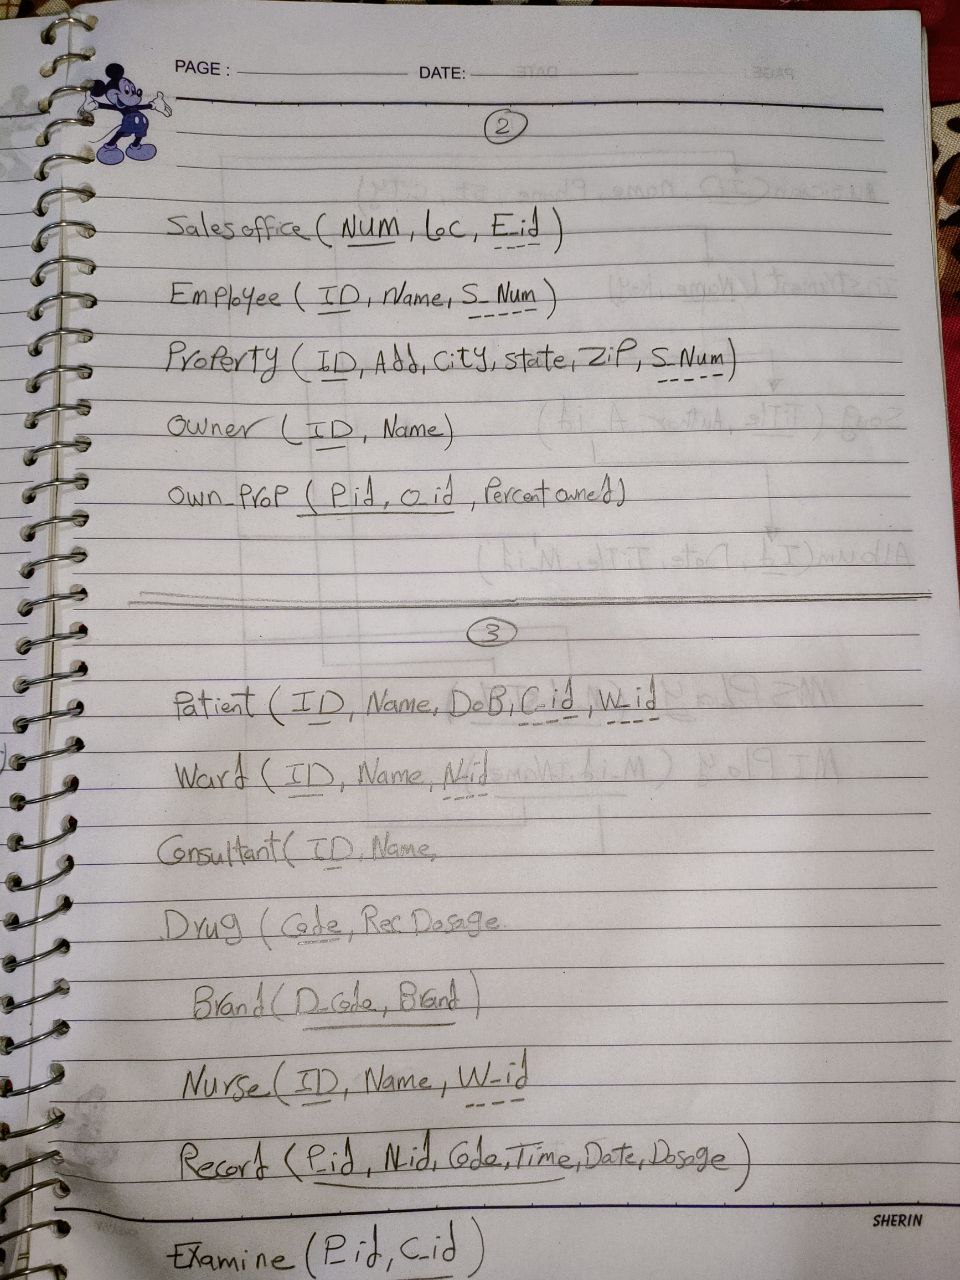 PAGE : DATE:
2
Sales office ( NUM, Loc, E_id )
Employee ( ID, Name, S_Num )
Property ( ID, Add, City, state, ZiP, S_Num )
Owner ( ID, Name )
Own_Prop ( P_id, O_id, Percent owned )
3
Patient ( ID, Name, DoB, C_id, W_id
Ward ( ID, Name, N_id
Consultant ( ID, Name,
Drug ( Code, Rec Dosage
Brand ( D_Code, Brand )
Nurse ( ID, Name, W_id
Record ( P_id, N_id, Code, Time, Date, Dosage )
SHERIN
Examine ( P_id, C_id )